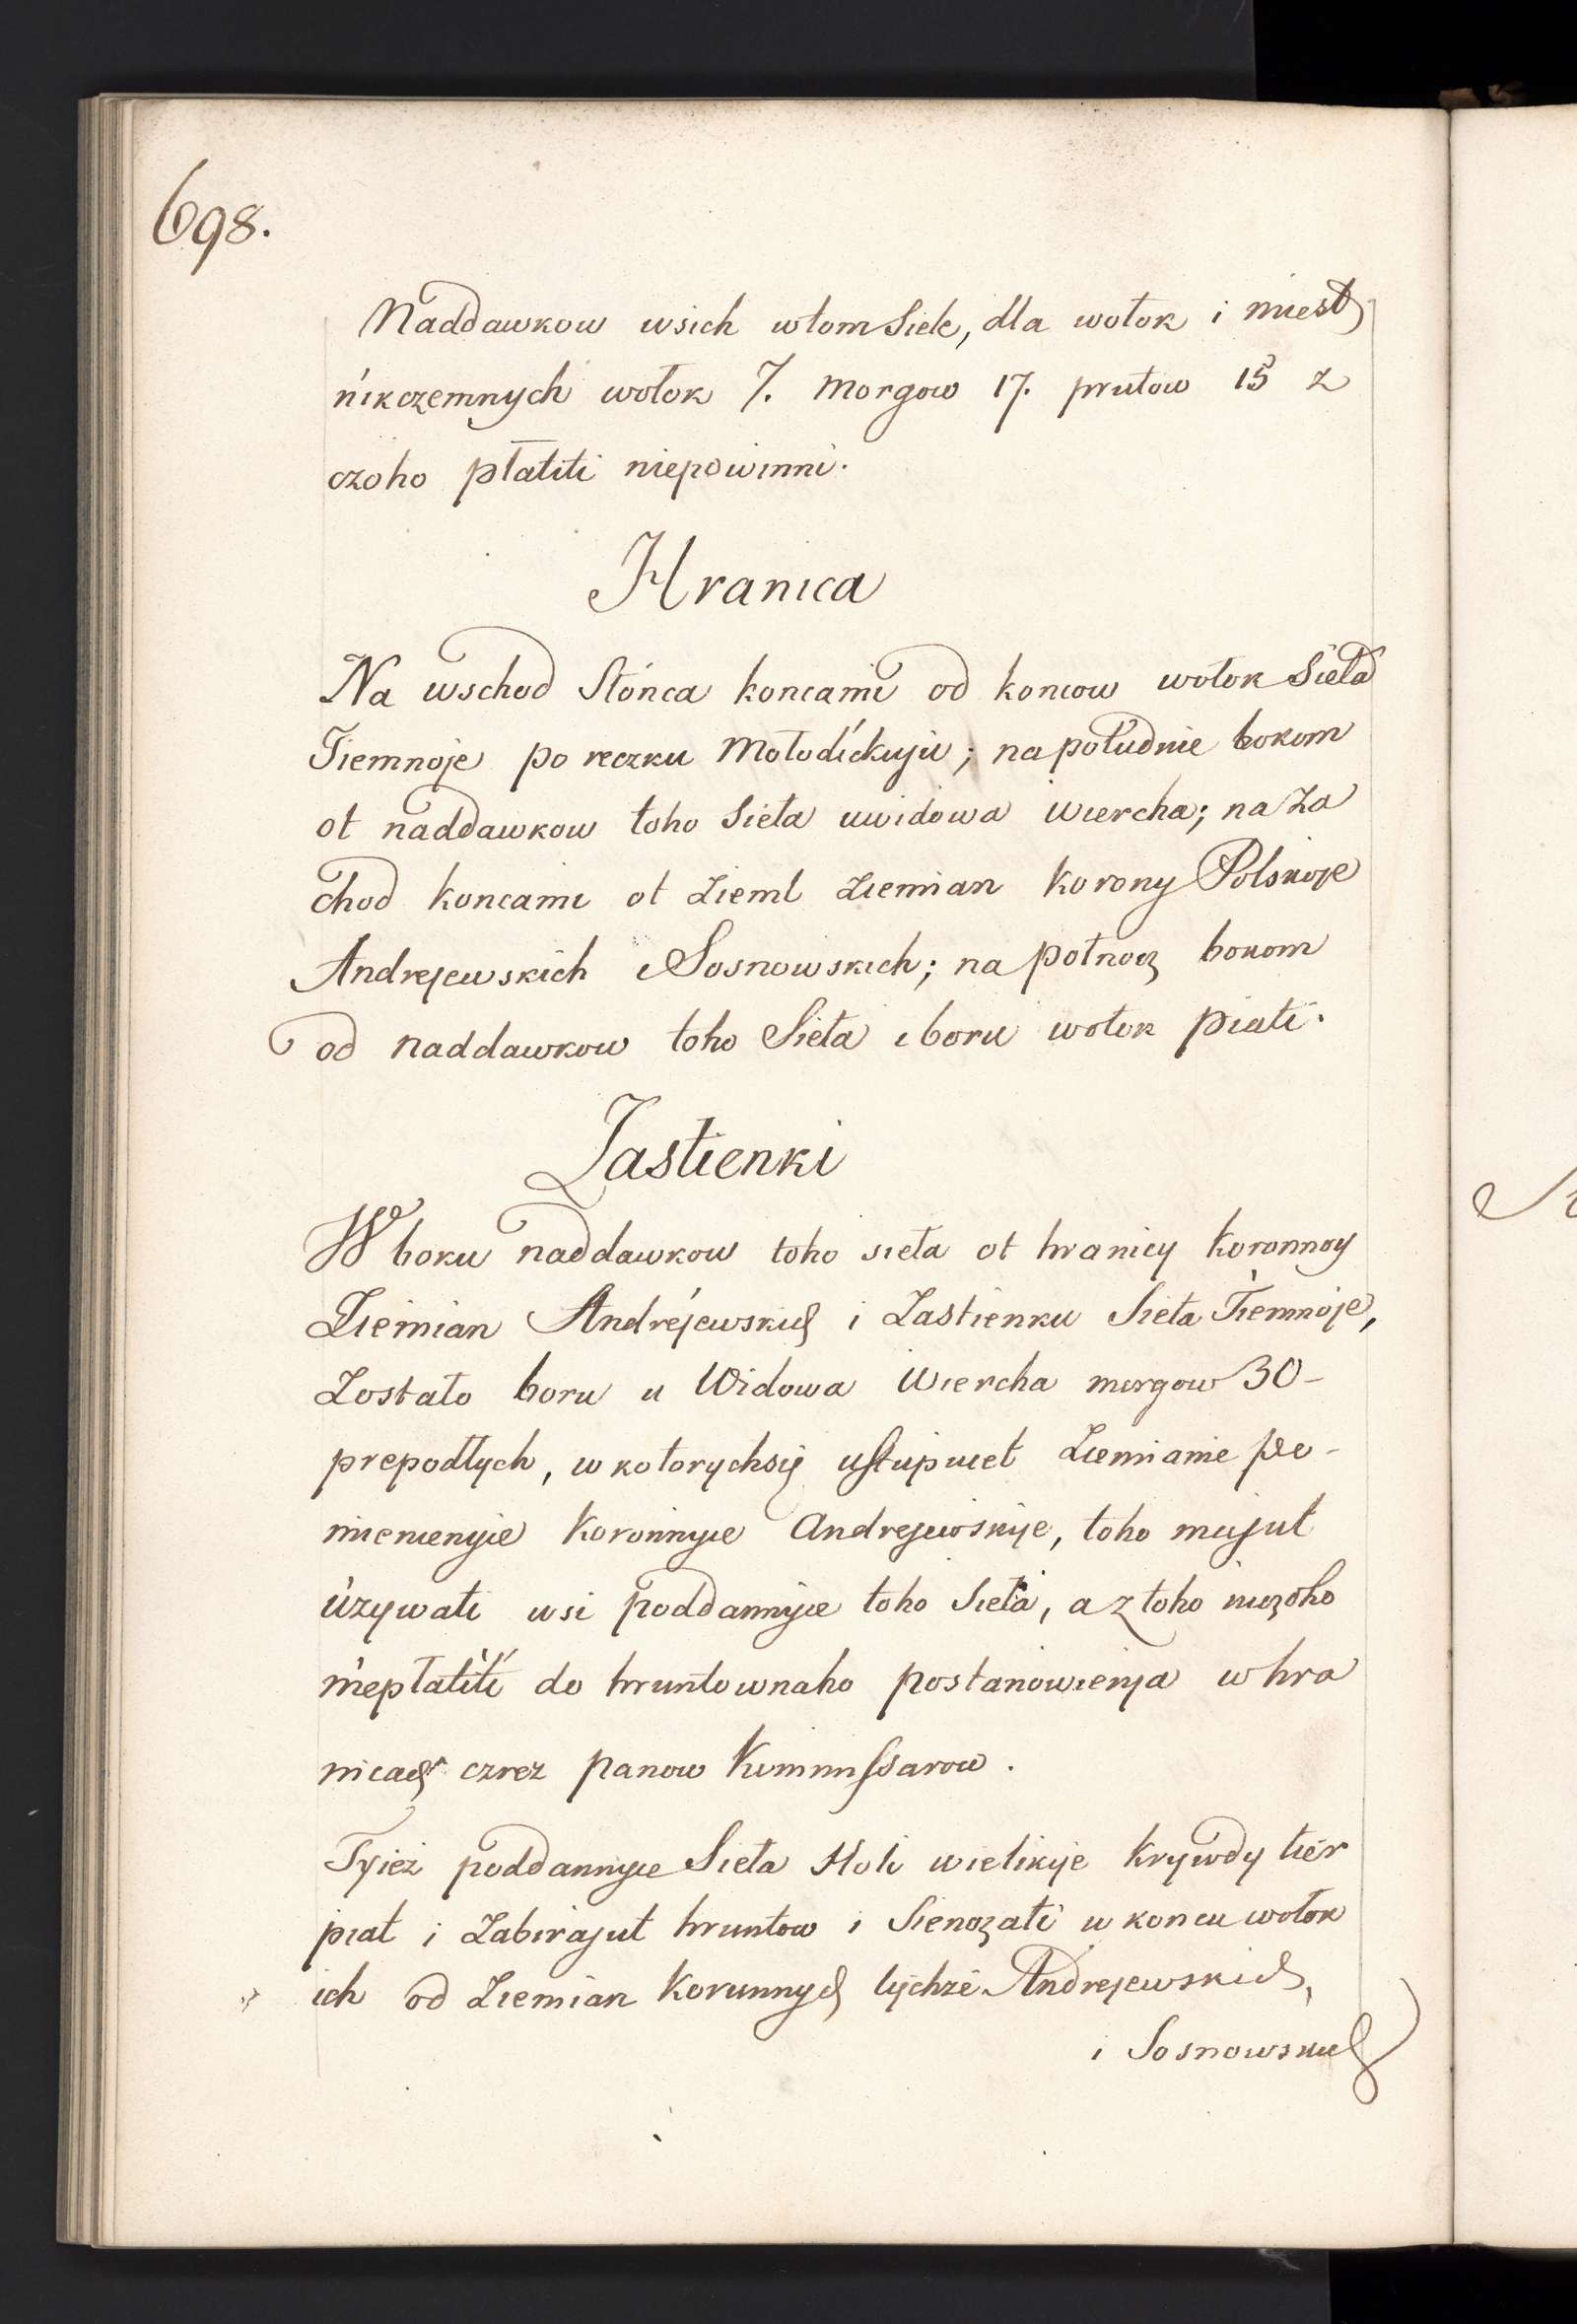 698.
Naddawkow wsich wtom Siele, dla wołok i miest
nikczemnych wołok 7. morgow 17. prutow 15 z
czoho płatiti niepowinni.
Hranica
Na wschod Słońca koncami od koncow wołok Sieła
Tiemnoje po reczku Mołodickuju; na południe bokom
ot naddawkow toho Sieła uwidowa wiercha; na za
chod koncami ot Zieml Ziemian korony Polskoje
Andrejewskich i Sosnowskich; na połnocz bokom
od naddawkow toho Sieła i boru wołok piati.
Zastienki
W boku naddawkow toho sieła ot hranicy koronnoy
Ziemian Andrejewskich i Zastienku Sieła Tiemnoje,
Zostało boru u Widowa Wiercha morgow 30-
prepodłych, w kotorychsię ustupuiet Ziemianie po-
mienienyie koronnyie Andrejewskije, toho majut
używati wsi poddannyie toho Sieła, a z toho niczoho
niepłatiti do hruntownaho postanowienja w hra
nicach czrez panow Kommissarow.
Tyież poddannyie Sieła Holi wielikije krywdy tier
piat i Zabirajut hruntow i Sienozati w koncu wołok
ich od Ziemian Koronnych tychże Andrejewskich,
i Sosnowskich